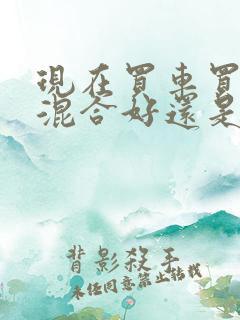 現在買車買
混合好還是
背影殺手
未经同意禁止转载